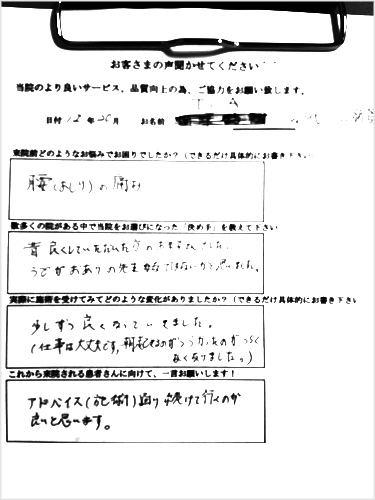 お客さまの声聞かせてください
当院のより良いサービス、品質向上の為、ご協力をお願い致します。
T. A
日付 12 年 20 月 お名前
来院前どのようなお悩みでお困りでしたか?(できるだけ具体的にお書き下さい
腰(おしり)の痛み
数多くの院がある中で当院をお選びになった「決め手」を教えて下さい
昔良くしていただいた方の
うでがおありの先生ではないかと思いました。
実際に施術を受けてみてどのような変化がありましたか?(できるだけ具体的にお書き下さい
少しずつ良くなっていきました。
(仕事は大丈夫です、朝起きるのがつらかったのがつらく
なくなりました。)
これから来院される患者さんに向けて、一言お願いします!
アドバイス(施術)通り続けて行くのが
良いと思います。